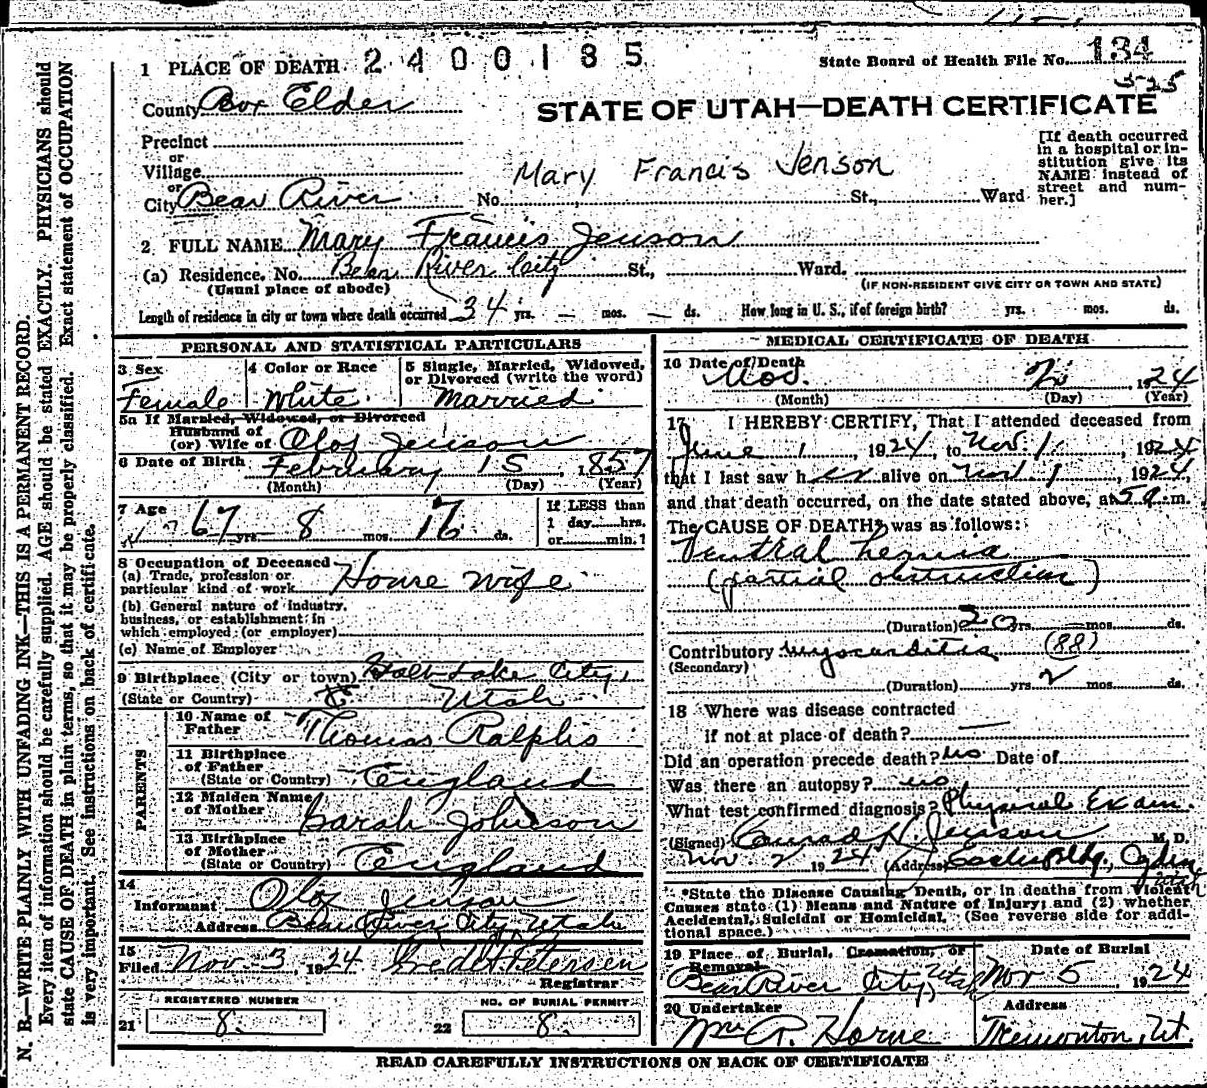 1 PLACE OF DEATH 2400185
State Board of Health File No. 134
5-25
County Box Elder
STATE OF UTAH—DEATH CERTIFICATE
Precinct
or
Village
or
City Bear River
Mary Francis Jenson
No. St., Ward
[If death occurred
in a hospital or in-
stitution give its
NAME instead of
street and num-
ber.]
2. FULL NAME Mary Francis Jenson
(a) Residence. No. Bear River City St., Ward.
(Usual place of abode)
(IF NON-RESIDENT GIVE CITY OR TOWN AND STATE)
Length of residence in city or town where death occurred 34 yrs. — mos. — ds. How long in U. S., if of foreign birth? yrs. mos. ds.
PERSONAL AND STATISTICAL PARTICULARS
3 Sex
Female
4 Color or Race
White
5 Single, Married, Widowed,
or Divorced (write the word)
Married
5a If Married, Widowed, or Divorced
Husband of
(or) Wife of Olof Jenson
6 Date of Birth February 15, 1857
(Month) (Day) (Year)
7 Age
67 yrs. 8 mos. 17 ds.
If LESS than
1 day......hrs.
or......min.?
8 Occupation of Deceased
(a) Trade, profession or
particular kind of work House wife
(b) General nature of industry,
business, or establishment in
which employed (or employer)
(c) Name of Employer
9 Birthplace (City or town) Salt Lake City,
(State or Country) Utah
PARENTS
10 Name of
Father Thomas Ralphs
11 Birthplace
of Father
(State or Country) England
12 Maiden Name
of Mother Sarah Johnson
13 Birthplace
of Mother
(State or Country) England
14
Informant Olof Jenson
Address Bear River City, Utah
15
Filed Nov. 3, 1924
Petersen
Registrar
REGISTERED NUMBER
21 8.
NO. OF BURIAL PERMIT
22 8.
MEDICAL CERTIFICATE OF DEATH
16 Date of Death
Nov. 2, 1924
(Month) (Day) (Year)
17 I HEREBY CERTIFY, That I attended deceased from
June 1, 1924, to Nov. 1, 1924,
that I last saw her alive on Nov. 1, 1924,
and that death occurred, on the date stated above, at 5 a. m.
The CAUSE OF DEATH* was as follows:
Ventral hernia
(partial obstruction)
(Duration) 20 yrs. — mos. ds.
Contributory Myocarditis (88)
(Secondary)
(Duration) yrs. 2 mos. ds.
18 Where was disease contracted
if not at place of death?
Did an operation precede death? no Date of
Was there an autopsy? no
What test confirmed diagnosis? Physical Exam.
(Signed) Conrad H. Jenson M. D.
Nov. 2 1924 (Address) Eccles Bldg., Ogden
Utah
*State the Disease Causing Death, or in deaths from Violent
Causes state (1) Means and Nature of Injury; and (2) whether
Accidental, Suicidal or Homicidal. (See reverse side for addi-
tional space.)
19 Place of Burial, Cremation, or
Removal
Bear River City, Utah
Date of Burial
Nov 5, 1924
20 Undertaker
Wm R. Horne
Address
Tremonton, Ut.
READ CAREFULLY INSTRUCTIONS ON BACK OF CERTIFICATE
N. B.—WRITE PLAINLY WITH UNFADING INK—THIS IS A PERMANENT RECORD.
Every item of information should be carefully supplied. AGE should be stated EXACTLY. PHYSICIANS should
state CAUSE OF DEATH in plain terms, so that it may be properly classified. Exact statement of OCCUPATION
is very important. See instructions on back of certificate.